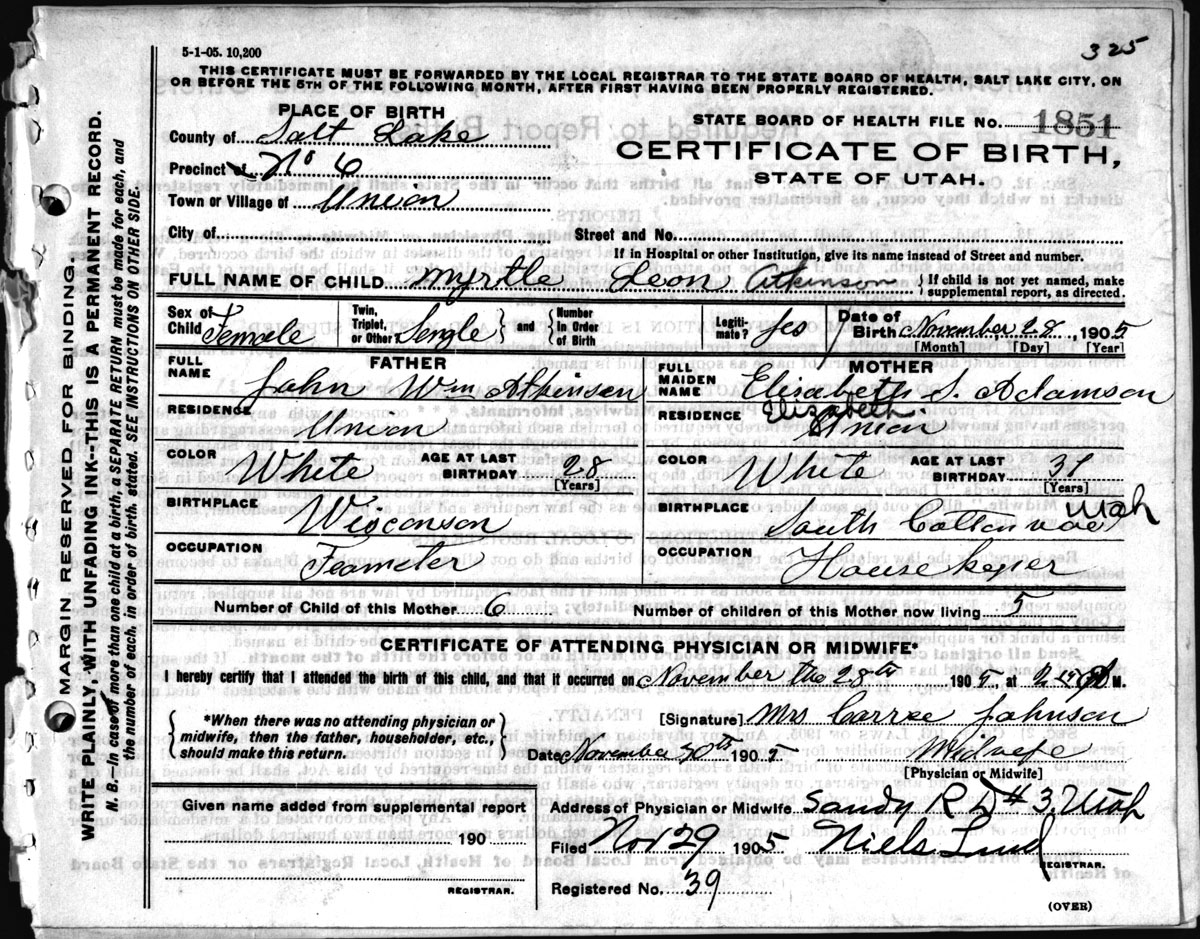 5-1-05. 10,200
325
THIS CERTIFICATE MUST BE FORWARDED BY THE LOCAL REGISTRAR TO THE STATE BOARD OF HEALTH, SALT LAKE CITY, ON
OR BEFORE THE 5TH OF THE FOLLOWING MONTH, AFTER FIRST HAVING BEEN PROPERLY REGISTERED.
PLACE OF BIRTH
County of Salt Lake
Precinct No 6
Town or Village of Union
City of
STATE BOARD OF HEALTH FILE NO. 1851
CERTIFICATE OF BIRTH,
STATE OF UTAH.
Street and No.
If in Hospital or other Institution, give its name instead of Street and number.
FULL NAME OF CHILD Myrtle Leon Atkinson { If child is not yet named, make supplemental report, as directed.
Sex of Child Female
Twin, Triplet, or Other Single } and { Number In Order of Birth
Legitimate? Yes
Date of Birth November 28, 1905
[Month] [Day] [Year]
FATHER
FULL NAME John Wm Atkinson
RESIDENCE Union
COLOR White AGE AT LAST BIRTHDAY 28
[Years]
BIRTHPLACE Wisconson
OCCUPATION Teamster
MOTHER
FULL MAIDEN NAME Elisabeth S. Adamson
Elizabeth
RESIDENCE Union
COLOR White AGE AT LAST BIRTHDAY 31
[Years]
BIRTHPLACE South Cottonwood Utah
OCCUPATION House keper
Number of Child of this Mother 6 Number of children of this Mother now living 5
CERTIFICATE OF ATTENDING PHYSICIAN OR MIDWIFE*
I hereby certify that I attended the birth of this child, and that it occurred on November the 28th 1905, at M.
{ *When there was no attending physician or midwife, then the father, householder, etc., should make this return. }
[Signature] Mrs Carrie Johnson
Date November 30th 1905 Midwife
[Physician or Midwife]
Given name added from supplemental report
190
REGISTRAR.
Address of Physician or Midwife Sandy R D # 3, Utah
Filed Nov 29 1905 Niels Lind
REGISTRAR.
Registered No. 39
(OVER)
MARGIN RESERVED FOR BINDING.
WRITE PLAINLY, WITH UNFADING INK--THIS IS A PERMANENT RECORD.
N. B.--In case of more than one child at a birth, a SEPARATE RETURN must be made for each, and
the number of each, in order of birth, stated. SEE INSTRUCTIONS ON OTHER SIDE.